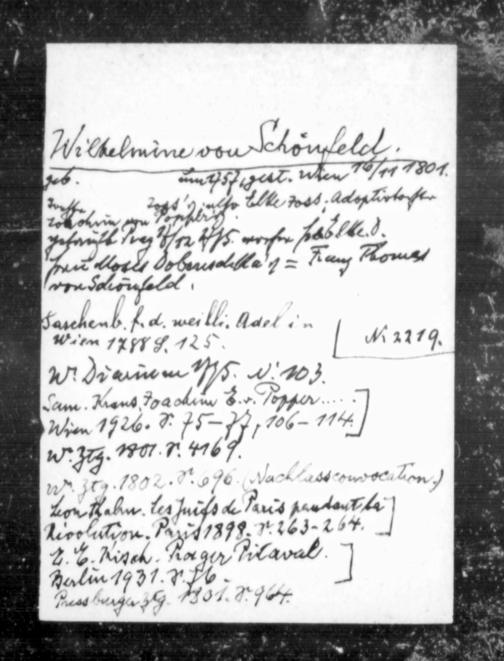 Wilhelmine von Schönfeld.
geb. um 1757, gest. Wien 16/11 1801.
Joss' also Elke Joss. Adoptivtochter
Joachim von Poppers.
getauft Prag 8/12 vorher hieß Elke D.
Frau Moses Dobruschka's = Franz Thomas
von Schönfeld.
Taschenb. f. d. weibli. Adel in
Wien 1788 S. 125.
N. 2219.
Wr. Diarium N. 103.
Sam. Kraus, Joachim E. v. Popper.....
Wien 1926. S. 75-77, 106-114.
Wr. Ztg. 1801. S. 4169.
Wr. Ztg. 1802. S. 696. (Nachlassconvocation.)
Leon Kahn. Les Juifs de Paris pendant la
Révolution. Paris 1898. S. 263-264.
E. E. Kisch. Prager Pitaval.
Berlin 1931. S. 76.
Pressburger Ztg. 1801. S. 964.